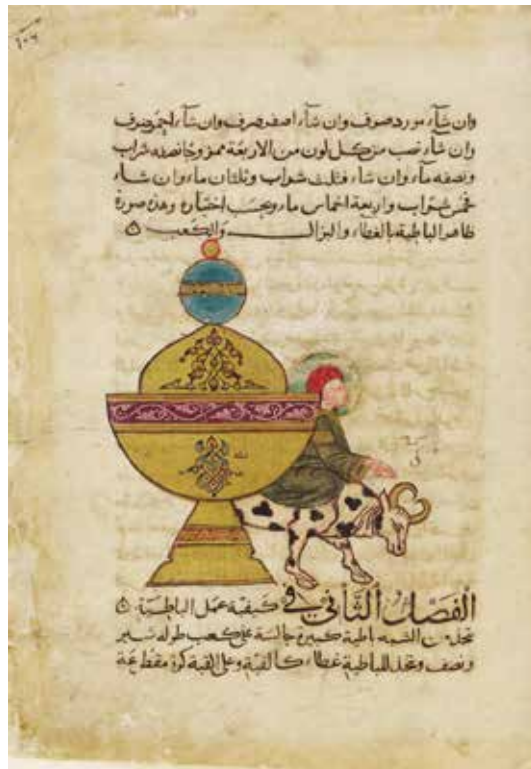 ١٠٦
وان شآء مورد صرف وان شآء اصفر صرف وان شآء احمر صرف
وان شآء نصب من كل لون من الاربعة ممزوجا نصفه شراب
ونصفه مآء وان شاء فثلث شراب وثلثان ماء وان شاء
فخمس شراب واربعة اخماس ماء وبحسب اختياره وهذه صورة
ظاهر الباطية بالغطاء والبزال والكعب ٥
الفصل الثاني في كيفية عمل الباطية ٥
من الشبه باطية كبيرة جالسة على كعب طوله شبر
ونصف ويتخذ للباطية غطاء كالقبة وعلى القبة كرة مقطعة